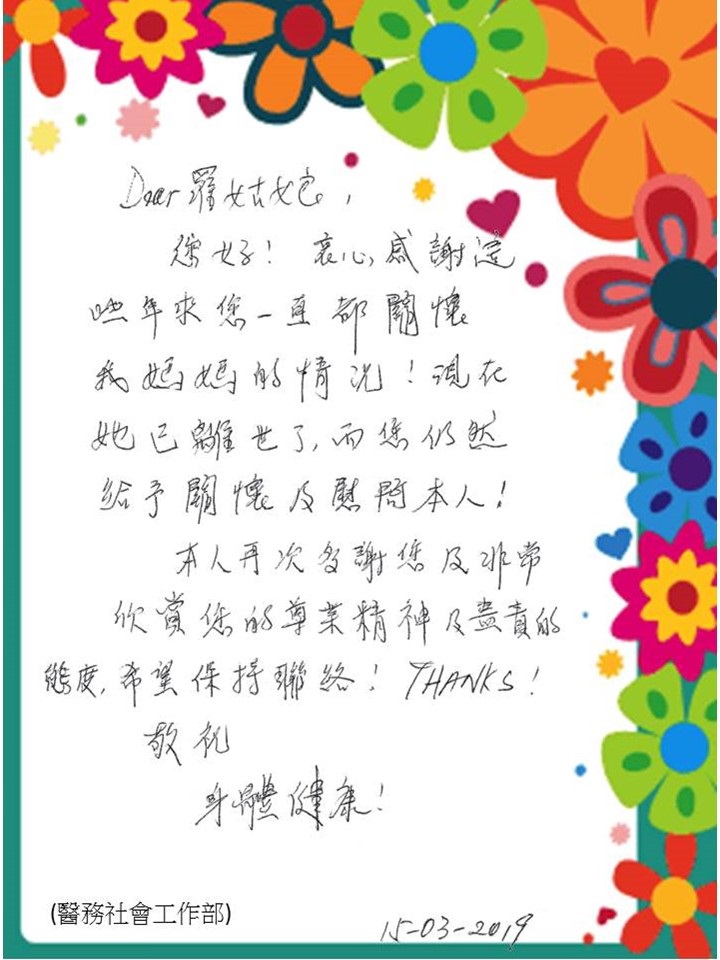 Dear 羅姑娘,
您好! 衷心感謝這
些年來您一直都關懷
我媽媽的情況!現在
她已離世了,而您仍然
給予關懷及慰問本人!
本人再次多謝您及非常
欣賞您的尊業精神及盡責的
態度,希望保持聯絡! THANKS!
敬祝
身體健康!
(醫務社會工作部)
15-03-2019